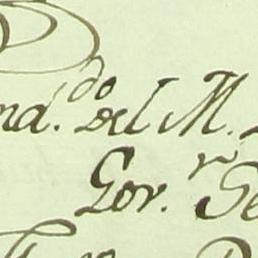 nd.do del M.
Gov.r Ge